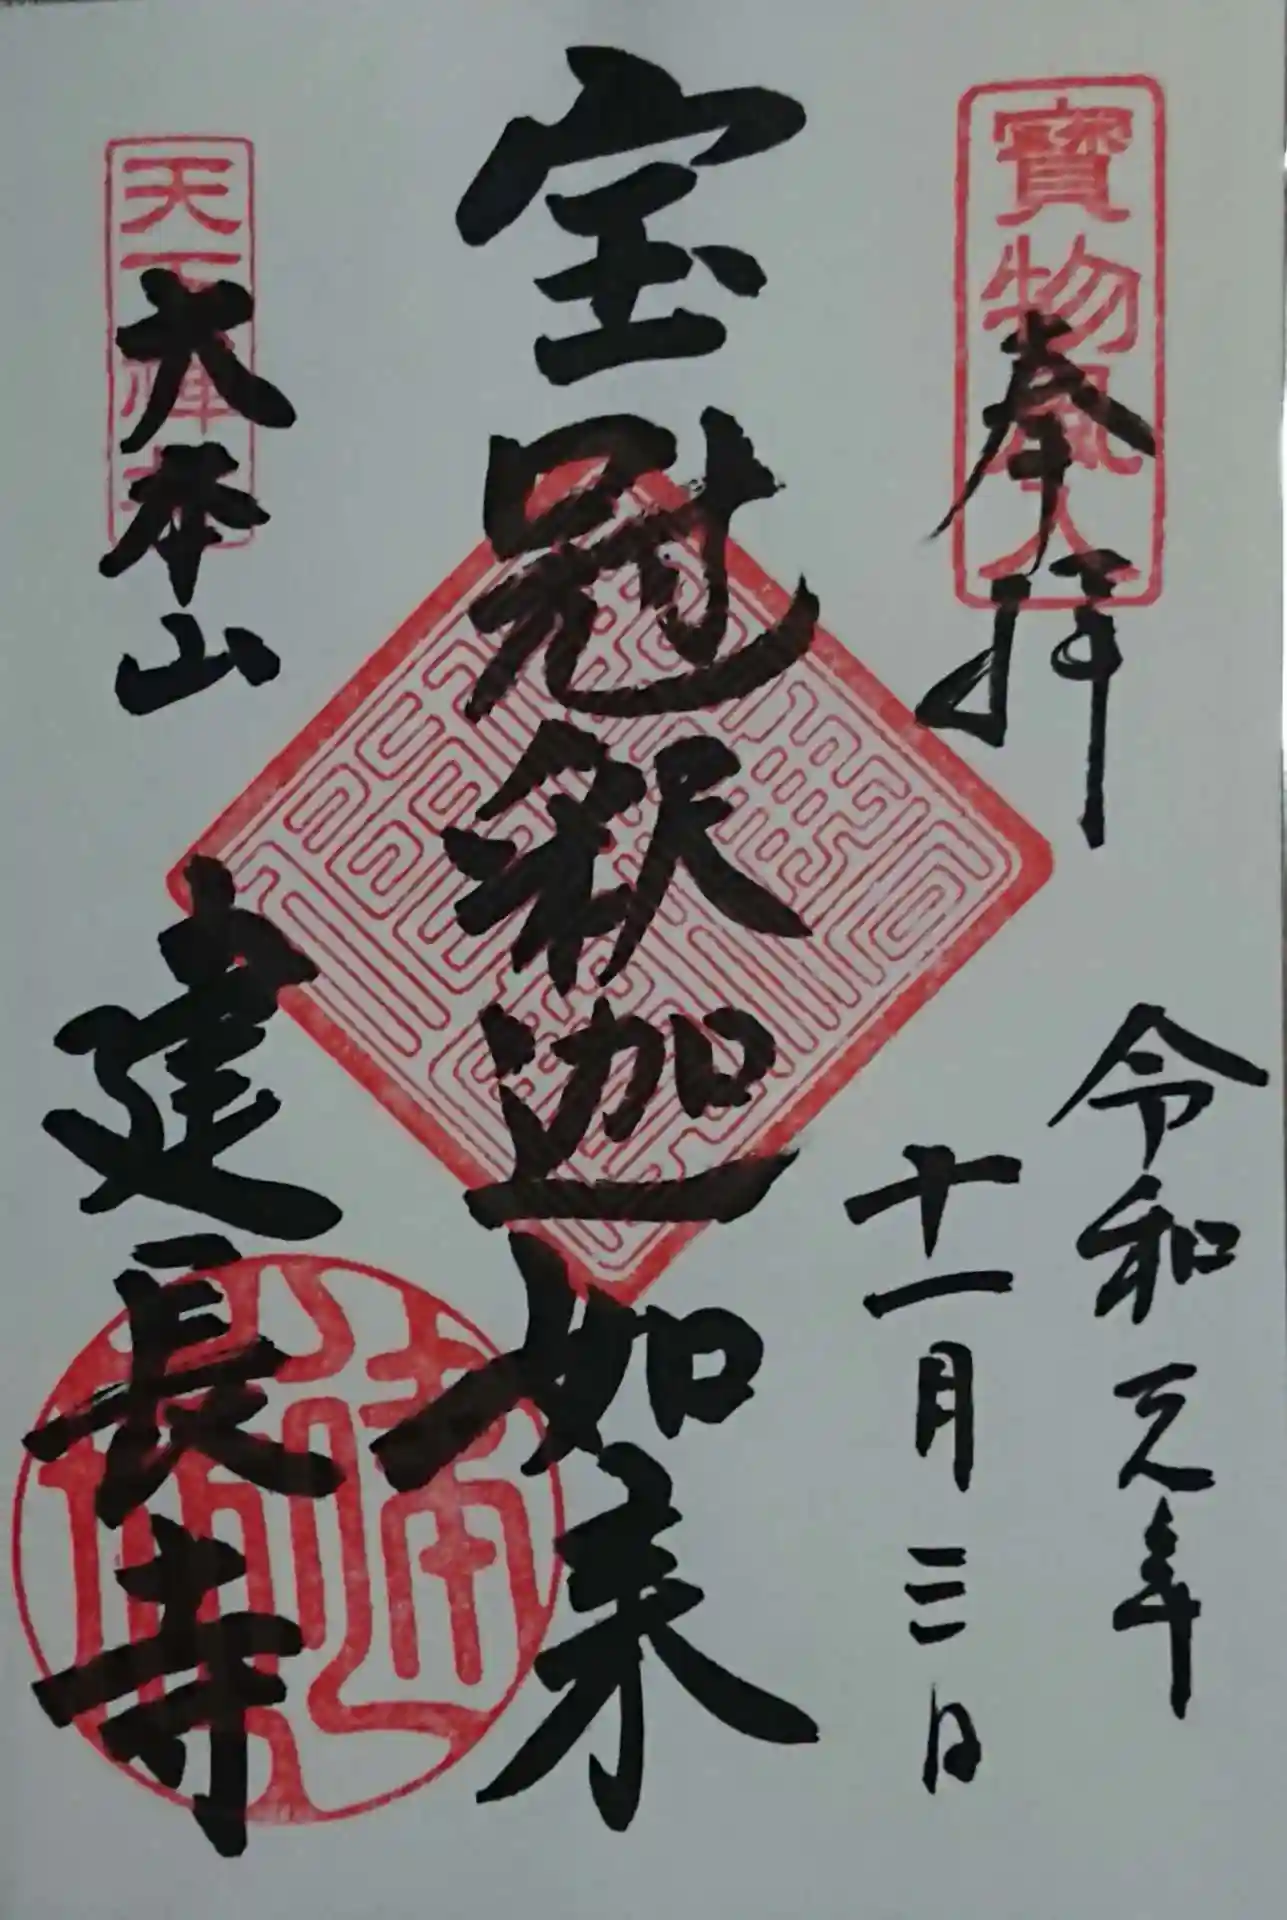 奉拝
令和元年
十一月三日
宝冠釈迦如来
大本山
建長寺
寳物風入